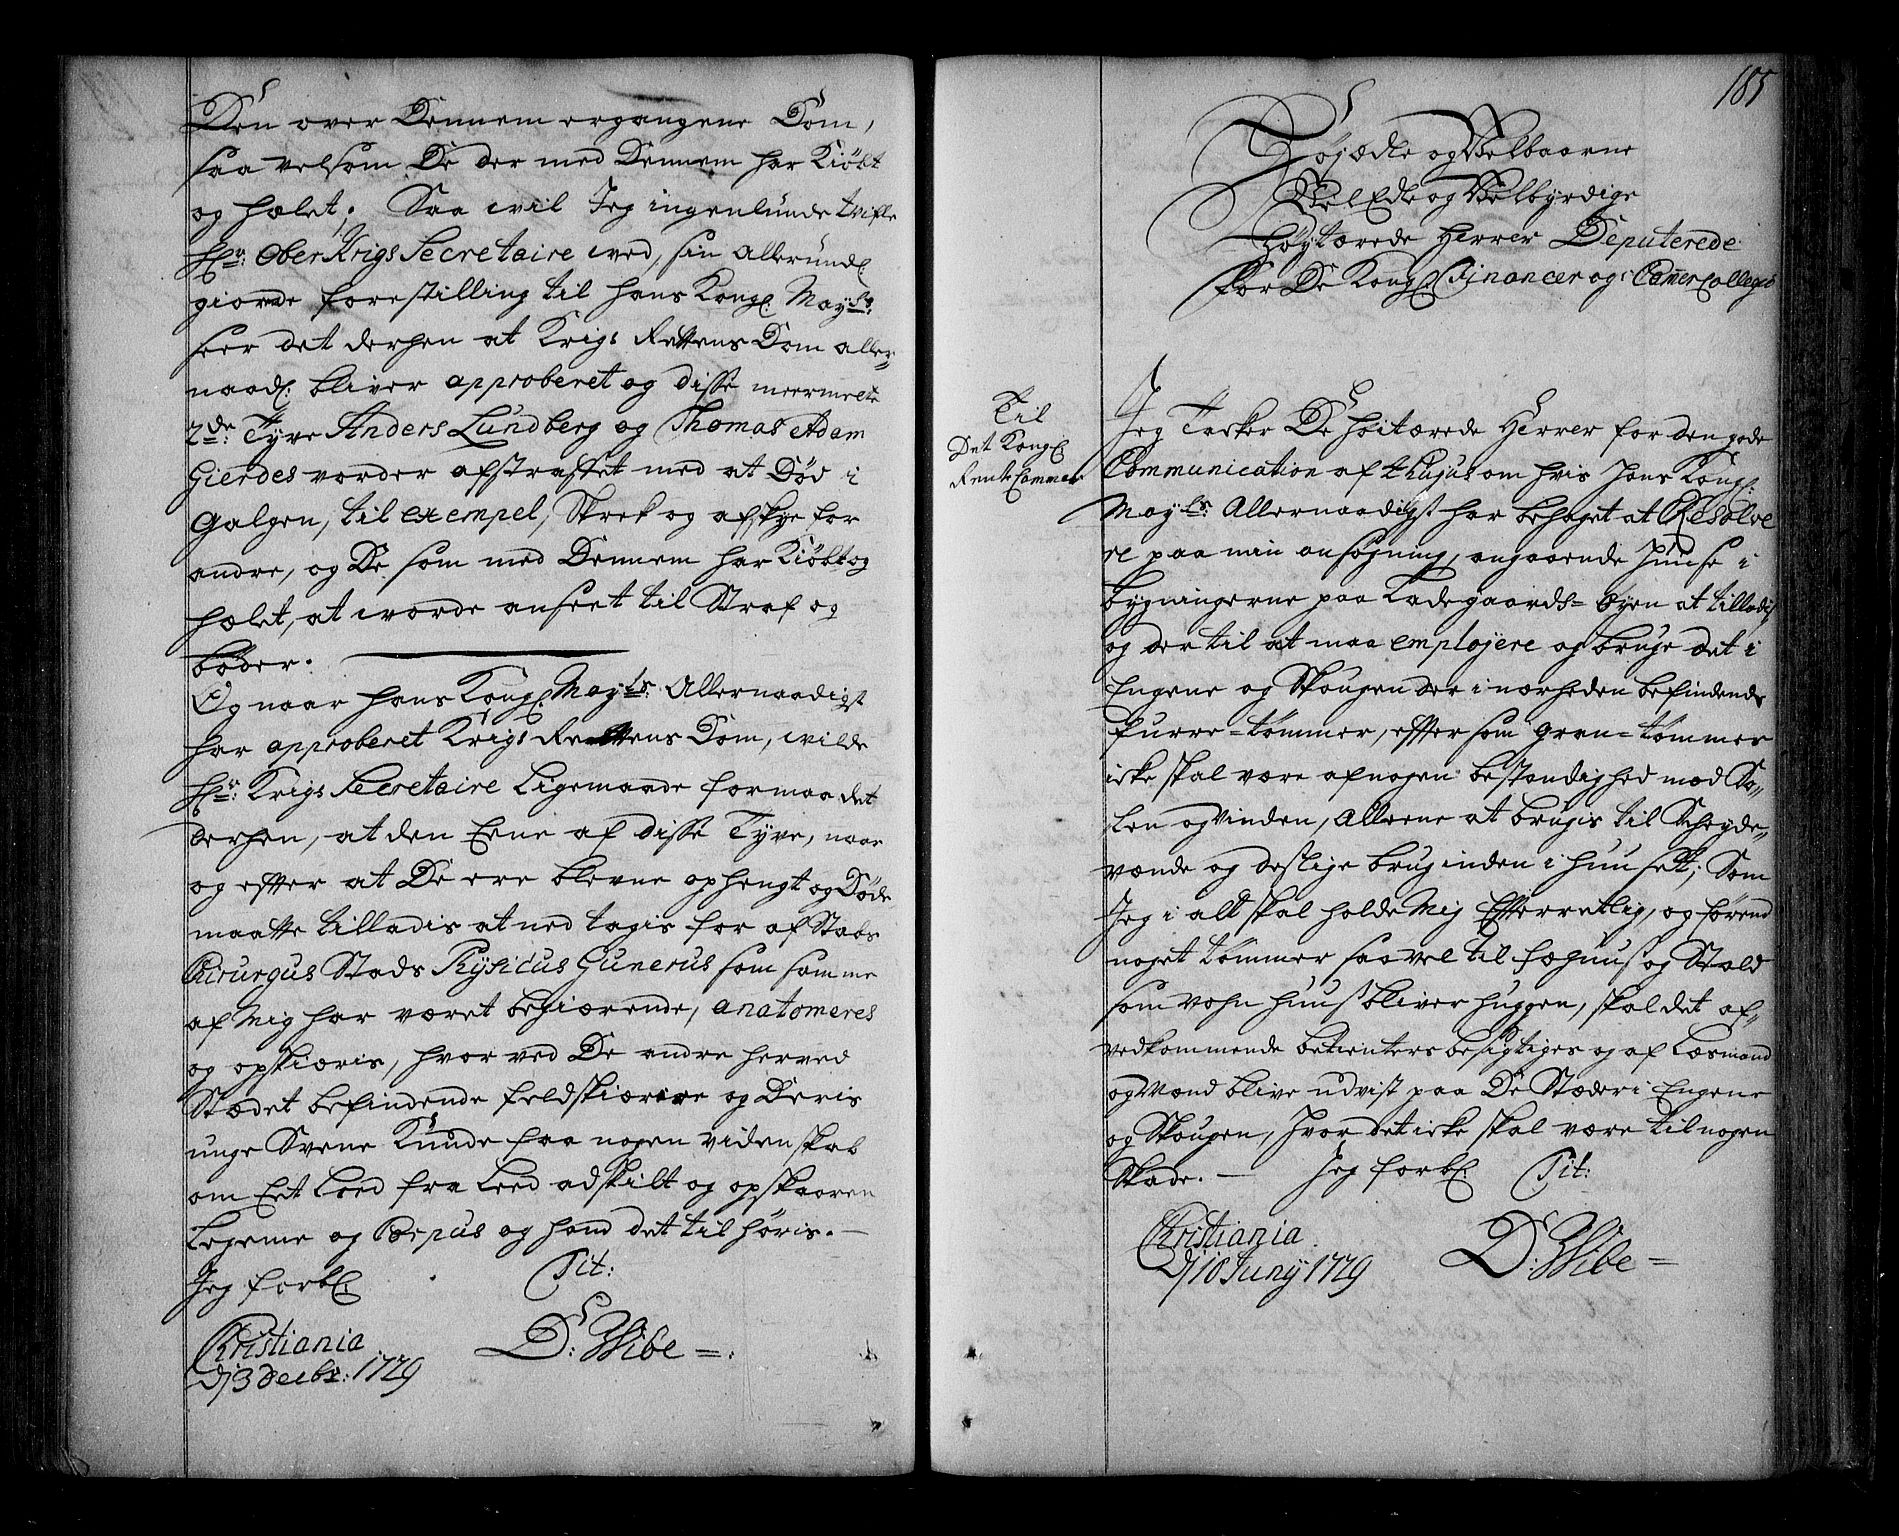 Den over Dennem ergangene Dom,
saa velsom De der med Dennem har Kiöbt
og hælet; Saa wil Jeg ingenlunde tvifle
Hr: Ober Krigs Secretaire wed, sin allerundl:
giorde forestilling til hans Kongl: Mayts:
seer det derhen at Krigs Rettens Dom aller=
naadl: bliver approberet og disse meermelte
2de: Tyve Anders Lundberg og Thomas Adam
Gierdes vorder afstraffet med at Död i
Galgen, til exempel, Skrek og afskye for
andre, og De som med Dennem har Kiöbt og
hælet, at worde anseet til Straf og
böder.
Og naar hans Kongl: Mayts: Allernaadigst
har approberet Krigs Rettens Dom, wilde
Hr: Krigs Secretaire Ligemaade formaa det
derhen, at den Eene af disse Tyve, naar
og efter at De ere blevne ophengt og Döde
maatte tilladis at ned tagis for af Stabs
Chirurgus Stads Physicus Gunerus som samme
af Mig har været begiærende, anatomeres
og opskiæris, hvor ved De andre herved
Stædet befindende feldskiærere og Deris
unge Svene Kunde faa nogen videnskab
om Eet Leed fra Leed adskilt og opskaaren
Legeme og Corpus og hvad det til höris. —
Jeg forbl: Tit:
Christiania
d 3 decbr: 1729
D: Wibe =.
185
Höjædle og Velbaarne
Vel Edle og Velbyrdige
Höytærede Herrer Deputerede
for De Kongl Financer og Camer Collegio
Til
Det Kongl
Rente Cammer
Jeg Tacker De höitærede Herrer for den gode
Communication af thujus om hvis Hans Kongl:
Mayts: Allernaadigst har behaget at Resolve
re paa min ansögning, angaaende Huuse i
bygningerne paa Ladegaards= Öyen at tilladis
og der til at maa emplojere og bruge det i
Engene og Skougen der i nærheden befindende
furre=tömmer, efter som gran=tömmer
icke skal være af nogen bestandighed mod So=
len og Vinden, alleene at brugis til Scheyde=
vænde og deslige brug inden i huuset; Som
Jeg i alt skal holde Mig Efterretlig, og förend
noget tömmer saavel til fæhuus og Stald
som vohn huus bliver huggen, skal det af
vedkommende betienters besigtiges og af Lœsmand
og Mænd blive udvist paa De Stæder i Engene
og Skougen, Hvor det icke skal være til nogen
Skade. — Jeg forbl: Tit:
Christiania
d 10 Juny 1729
D: Wibe =